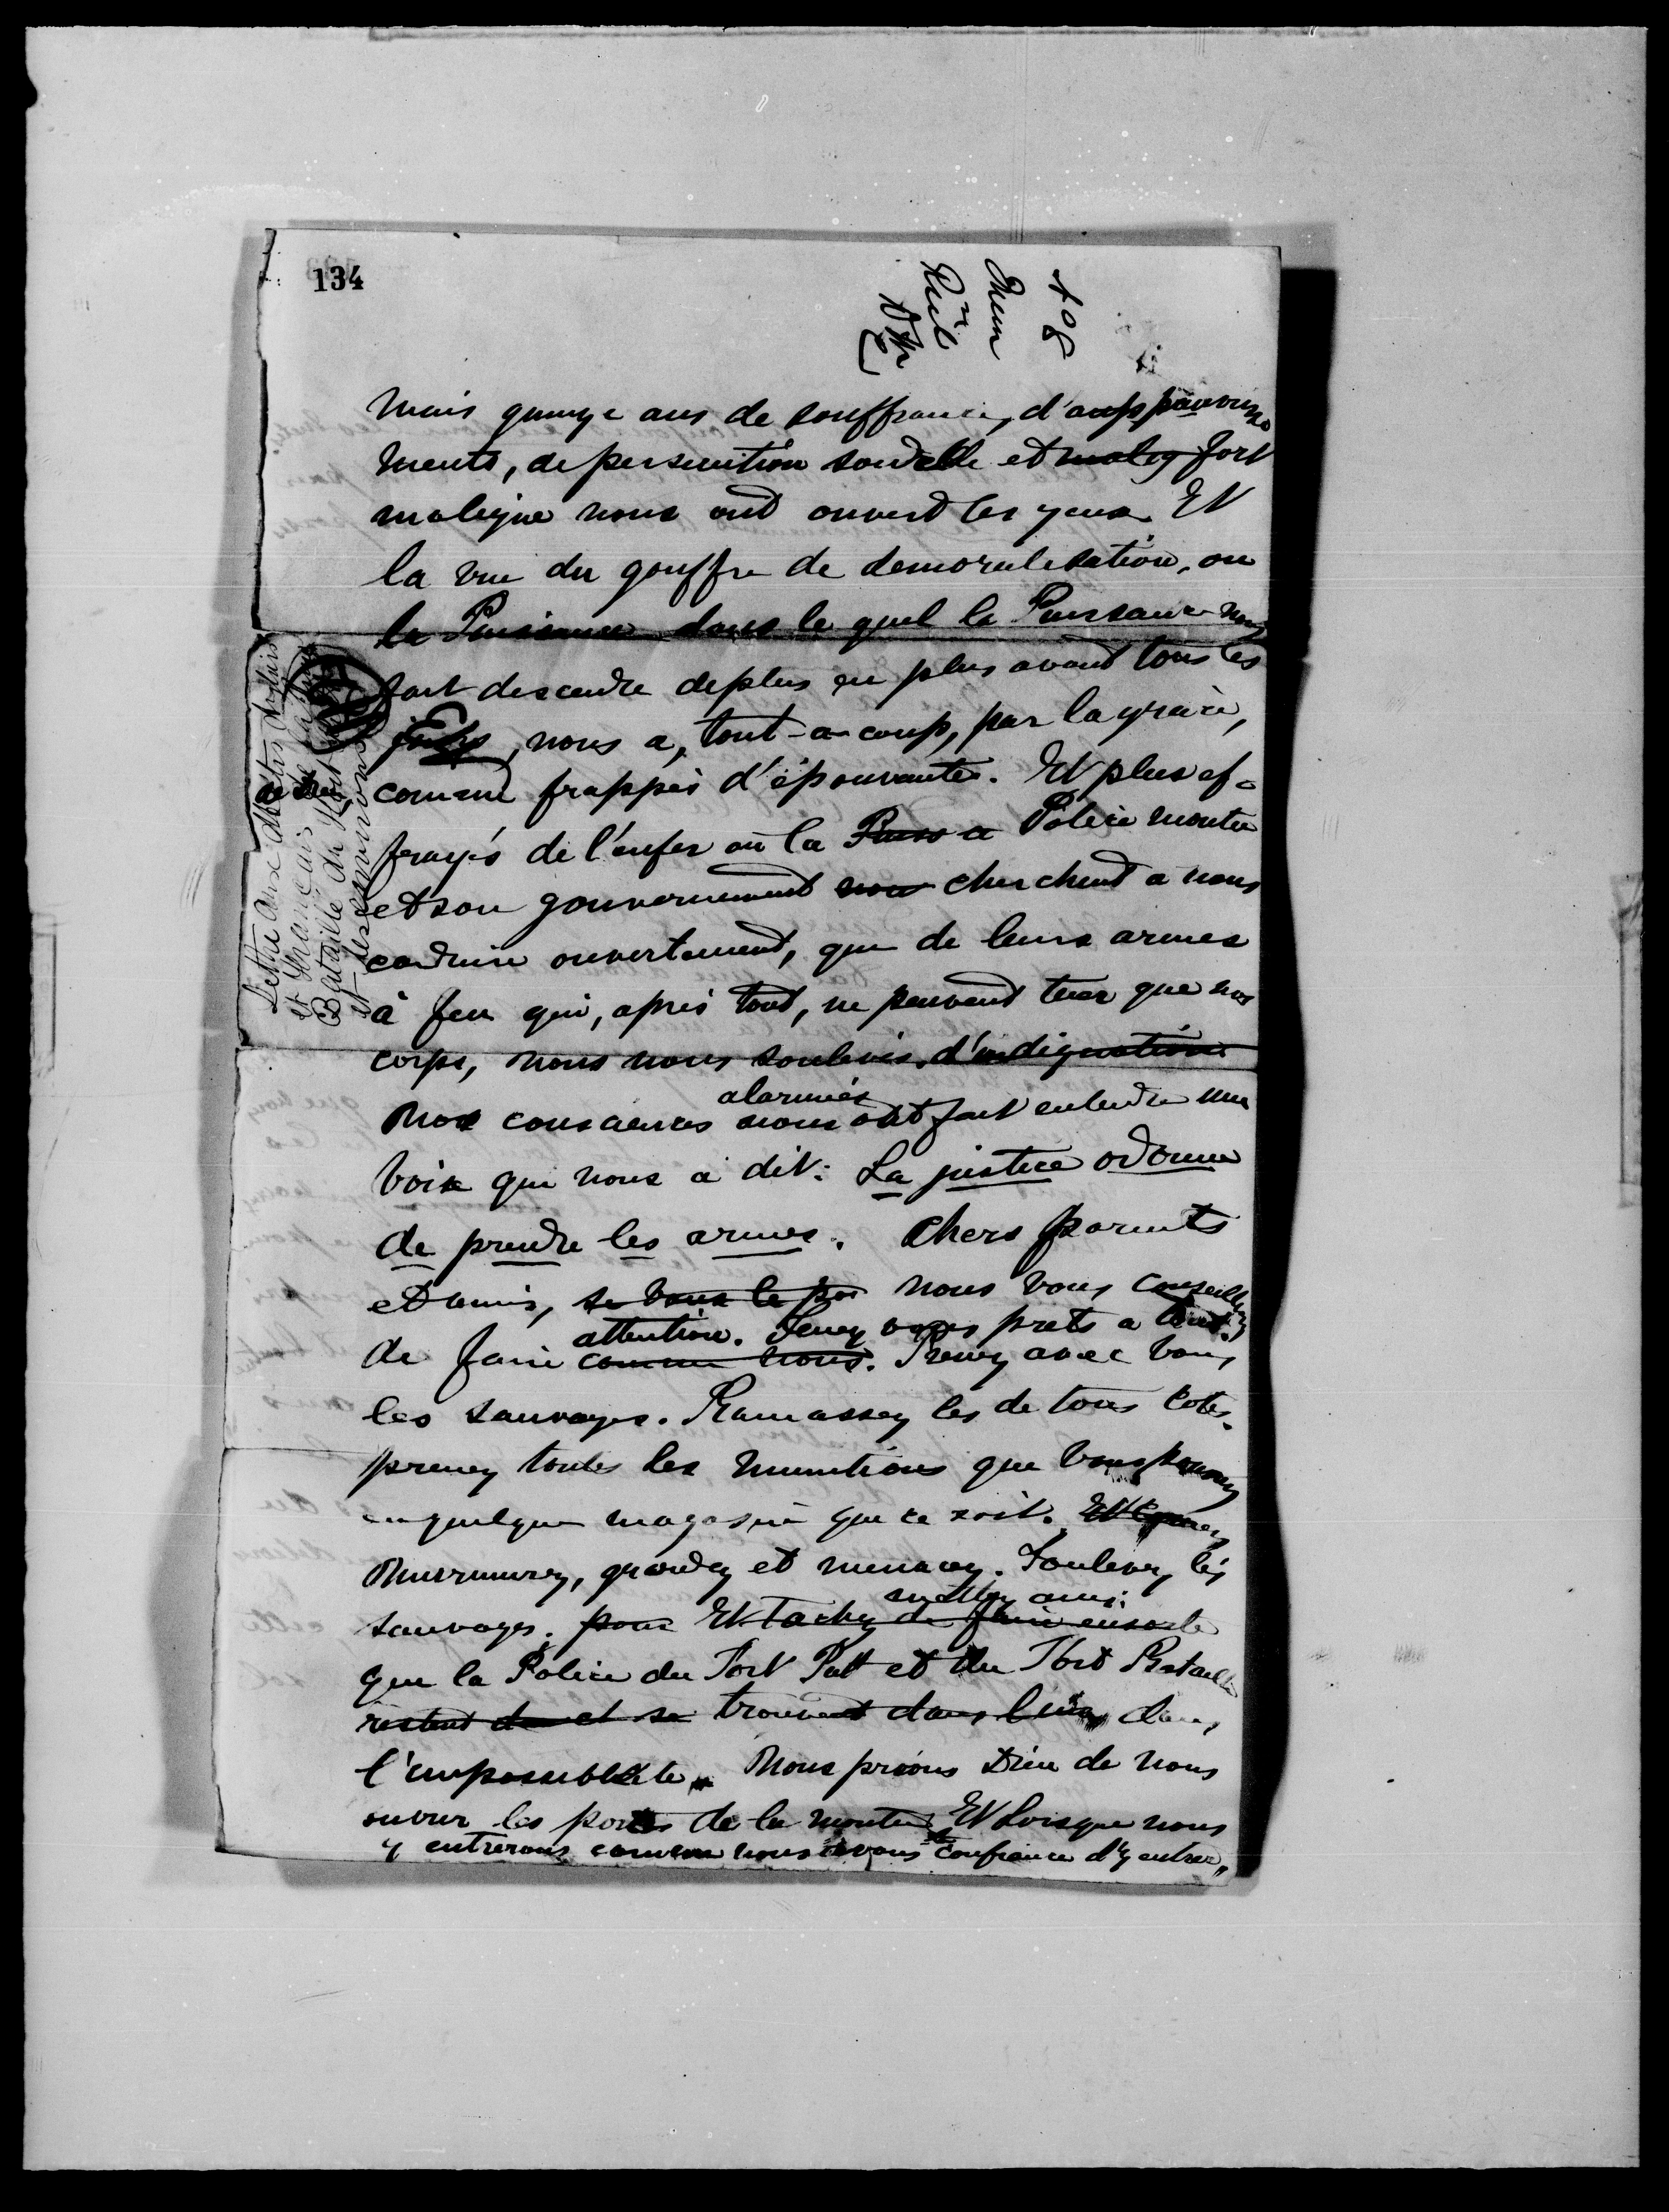 134
Mais quinze ans de souffrances, d'appauvrisse
ments, de persecution sourde et malig fort
maligne nous ont ouvert les yeux. Et
la vue du gouffre de demoralisation, ou
la Puissance dans le quel la Puissance nous
fait descendre de plus en plus avant tous les
jours, nous a, tout-a-coup, par la grace,
comme frappés d'épouvante. Et plus ef-
frayés de l'enfer où la Puiss a Police montée
et son gouvernement nous cherchent a nous
conduire ouvertement, que de leurs armes
à feu qui, après tout, ne peuvent tuer que nos
corps, nous nous soulevés, d'indignation
alarmées
Nos consciences nous ont fait entendre une
voix qui nous a dit: La justice odonne
de prendre les armes. Chers parents
et amis, nous vous conseillons
attention. Tenez vous prets a tout.
de faire comme nous. Prenez avec vous
les sauvages. Ramassez les de tous cotés.
prenez toutes les munitions que vous pouvez
en quelque magasin que ce soit. Et
Murmurez, grondez et menacez. Soulevez les
sauvages. pour Et Tachez de faire ensorte
que la Police du Fort Pitt et du Fort Bataille
restent de et se trouvent dans dans
l'impossibilite. Nous prions Dieu de nous
ouvrir les portes de la montée. Et Lorsque nous
y entrerons comme nous avons confiance d'y entrer,
Lettre aux
et Français
Bataille
et des environs